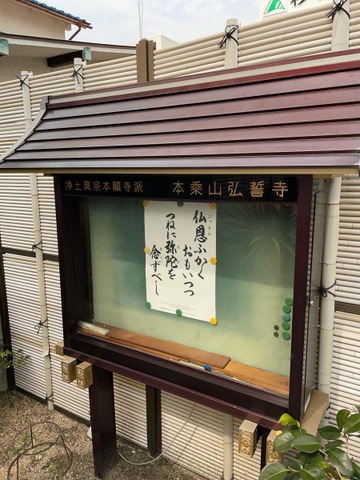 浄土真宗本願寺派 本乗山弘誓寺
仏恩ふかく
おもいつつ
つねに弥陀を
念ずべし